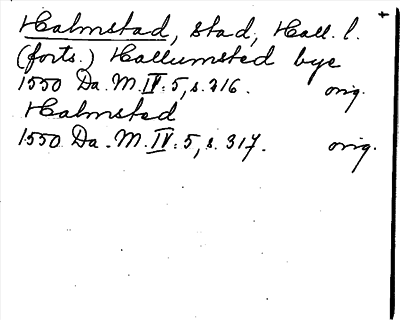 Halmstad, stad, Hall. l.
(forts.) Hallumsted bye
1550 Da. M. IV: 5, s. 316. orig.
Halmsted
1550 Da. M. IV: 5, s. 317. orig.